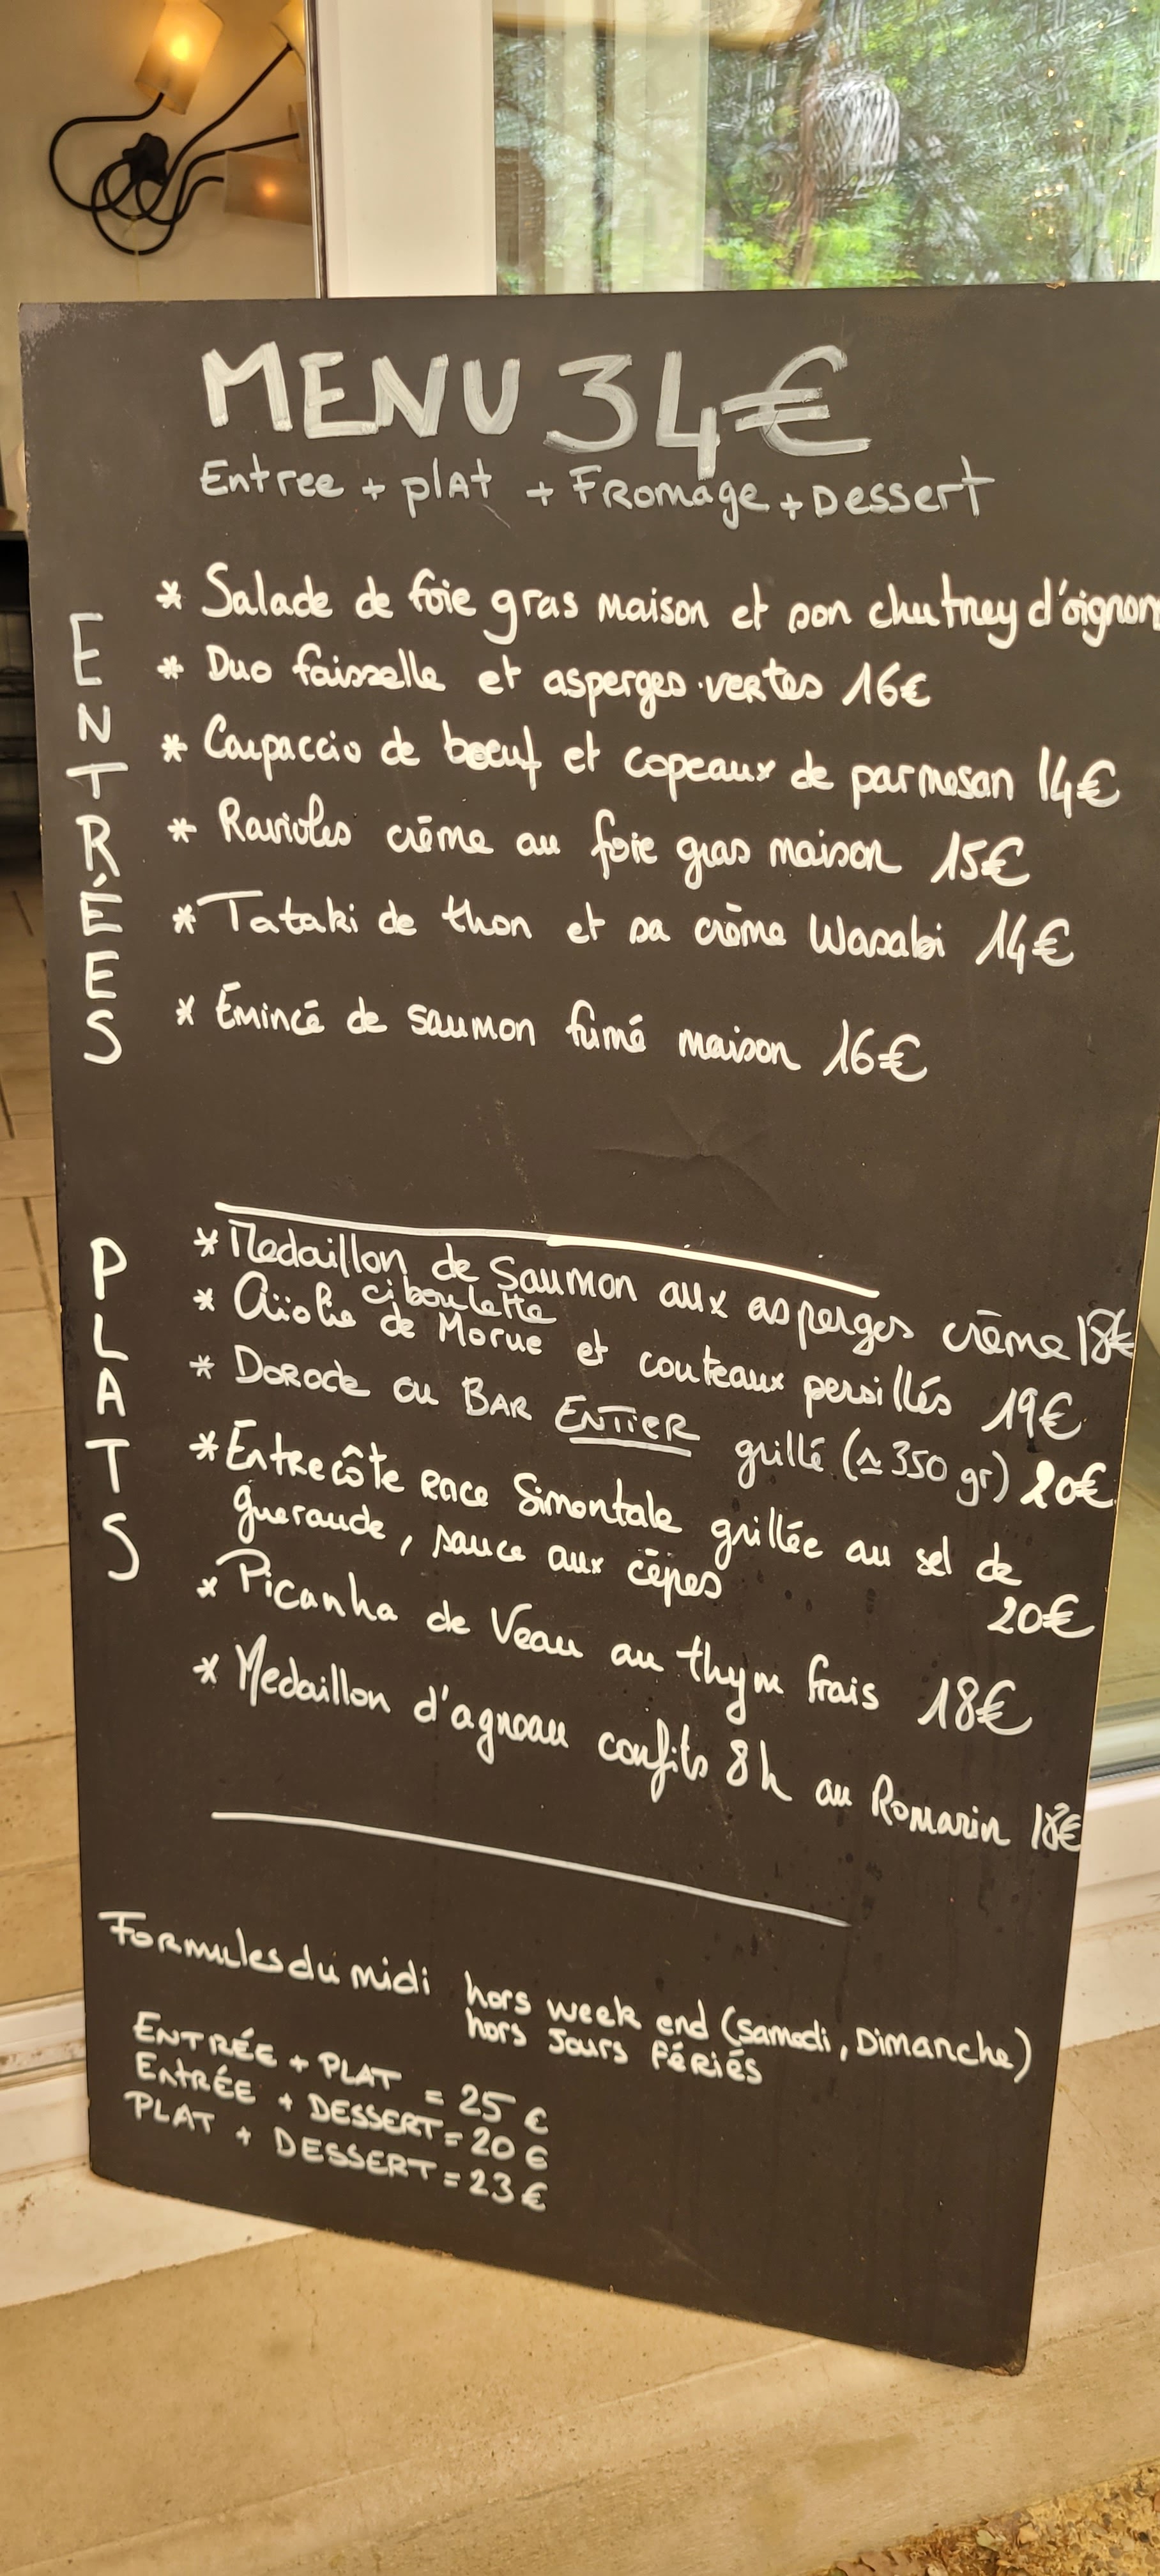 MENU 34€
Entree + plAt + FRomage + Dessert
ENTRÉES
* Salade de foie gras maison et son chutney d'oignon
* Duo faisselle et asperges vertes 16€
* Carpaccio de boeuf et copeaux de parmesan 14€
* Ravioles crème au foie gras maison 15€
* Tataki de thon et sa crème Wasabi 14€
* Émincé de saumon fumé maison 16€
PLATS
* Medaillon de Saumon aux asperges crème 18€
ciboulette
* Aïolie de Morue et couteaux persillés 19€
* DORADE ou BAR ENTIER grillé (≃ 350 gr) 20€
* Entrecôte Race Simontale grillée au sel de
guerande, sauce aux cèpes
20€
* Picanha de Veau au thym frais 18€
* Medaillon d'agneau confits 8h au Romarin 18€
Formules du midi hors week end (Samedi, Dimanche)
hors Jours FÉRIÉS
ENTRÉE + PLAT = 25 €
ENTRÉE + DESSERT = 20 €
PLAT + DESSERT = 23 €